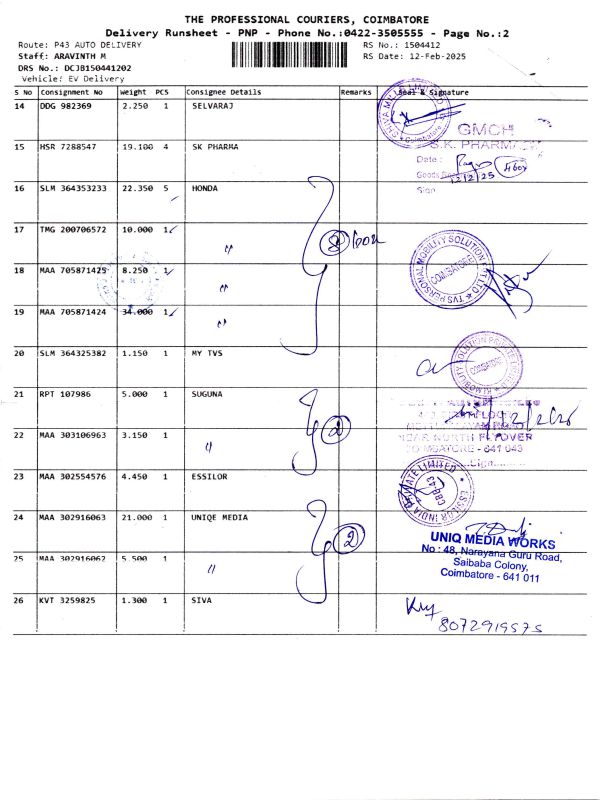 THE PROFESSIONAL COURIERS, COIMBATORE
Delivery Runsheet - PNP - Phone No.:0422-3505555 - Page No.:2
Route: P43 AUTO DELIVERY
RS No.: 1504412
Staff: ARAVINTH M
RS Date: 12-Feb-2025
DRS No.: DCJB150441202
Vehicle: EV Delivery
S No Consignment No Weight PCS Consignee Details Remarks Seal & Signature
14 DDG 982369 2.250 1 SELVARAJ
GMCH
15 HSR 7288547 19.100 4 SK PHARMA
S.K. PHARMACY
Date :
12/2/25
Sign
16 SLM 364353233 22.350 5 HONDA
17 TMG 200706572 10.000 1 "
8 box
TVS PERSONAL MOBILITY SOLUTION PVT LTD
COIMBATORE
18 MAA 705871425 8.250 1 "
19 MAA 705871424 34.000 1 "
20 SLM 364325382 1.150 1 MY TVS
21 RPT 107986 5.000 1 SUGUNA
2
22 MAA 303106963 3.150 1 "
NEAR NORTH FLYOVER
COIMBATORE - 641 043
23 MAA 302554576 4.450 1 ESSILOR
ESSILOR INDIA PRIVATE LIMITED
CBE-43
24 MAA 302916063 21.000 1 UNIQE MEDIA
2
UNIQ MEDIA WORKS
No : 48, Narayana Guru Road,
Saibaba Colony,
Coimbatore - 641 011
25 MAA 302916062 5.500 1 "
26 KVT 3259825 1.300 1 SIVA
8072919575